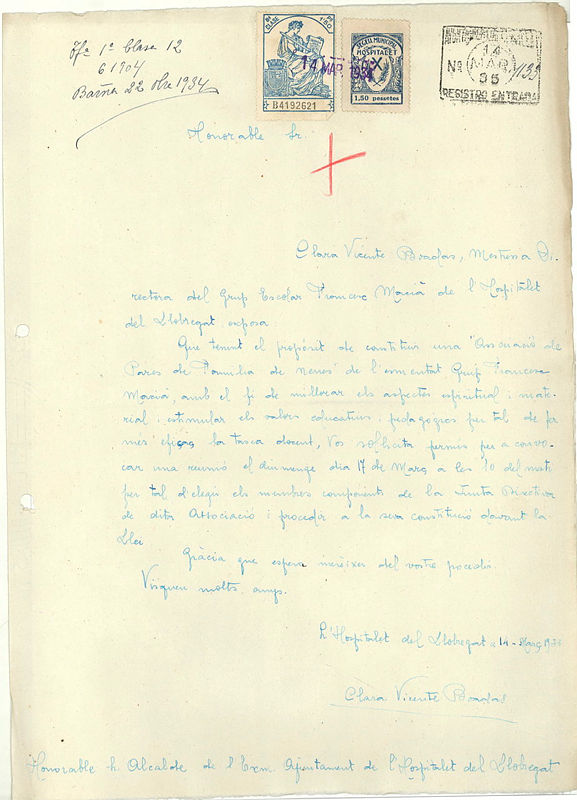 1ª Clase 12
61904
Barna 22 Obre 1934
8ª CLASE
B4192621
14 MAR. 1935
SEGELL MUNICIPAL
HOSPITALET
1,50 pessetes
14
MAR
Nº 35
REGISTRO ENTRADA
Honorable Sr.
Clara Vicente Bradas, Mestressa Di-
rectora del Grup Escolar Francesc Macià de l'Hospitalet
del Llobregat exposa
Que tenint el propòsit de constituir una "Associació de
Pares de Familia de nenes" de l'esmentat Grup Francesc
Macià, amb el fi de millorar els aspectes espiritual i mate-
rial i estimular els valors educatius i pedagogics per tal de fer
més eficaç la tasca docent, Vos sol·licita permís per a convo-
car una reunió el diumenge dia 17 de Març a les 10 del matí
per tal d'elegir els membres components de la Junta Directiva
de dita Associació i procedir a la seva constitució davant la
Llei
Gràcia que espera mereixer del vostre procedir.
Visqueu molts anys.
L'Hospitalet del Llobregat a 14 - Març
Clàra Vicente Bradas
Honorable Alcalde de l'Exm. Ajuntament de l'Hospitalet del Llobregat